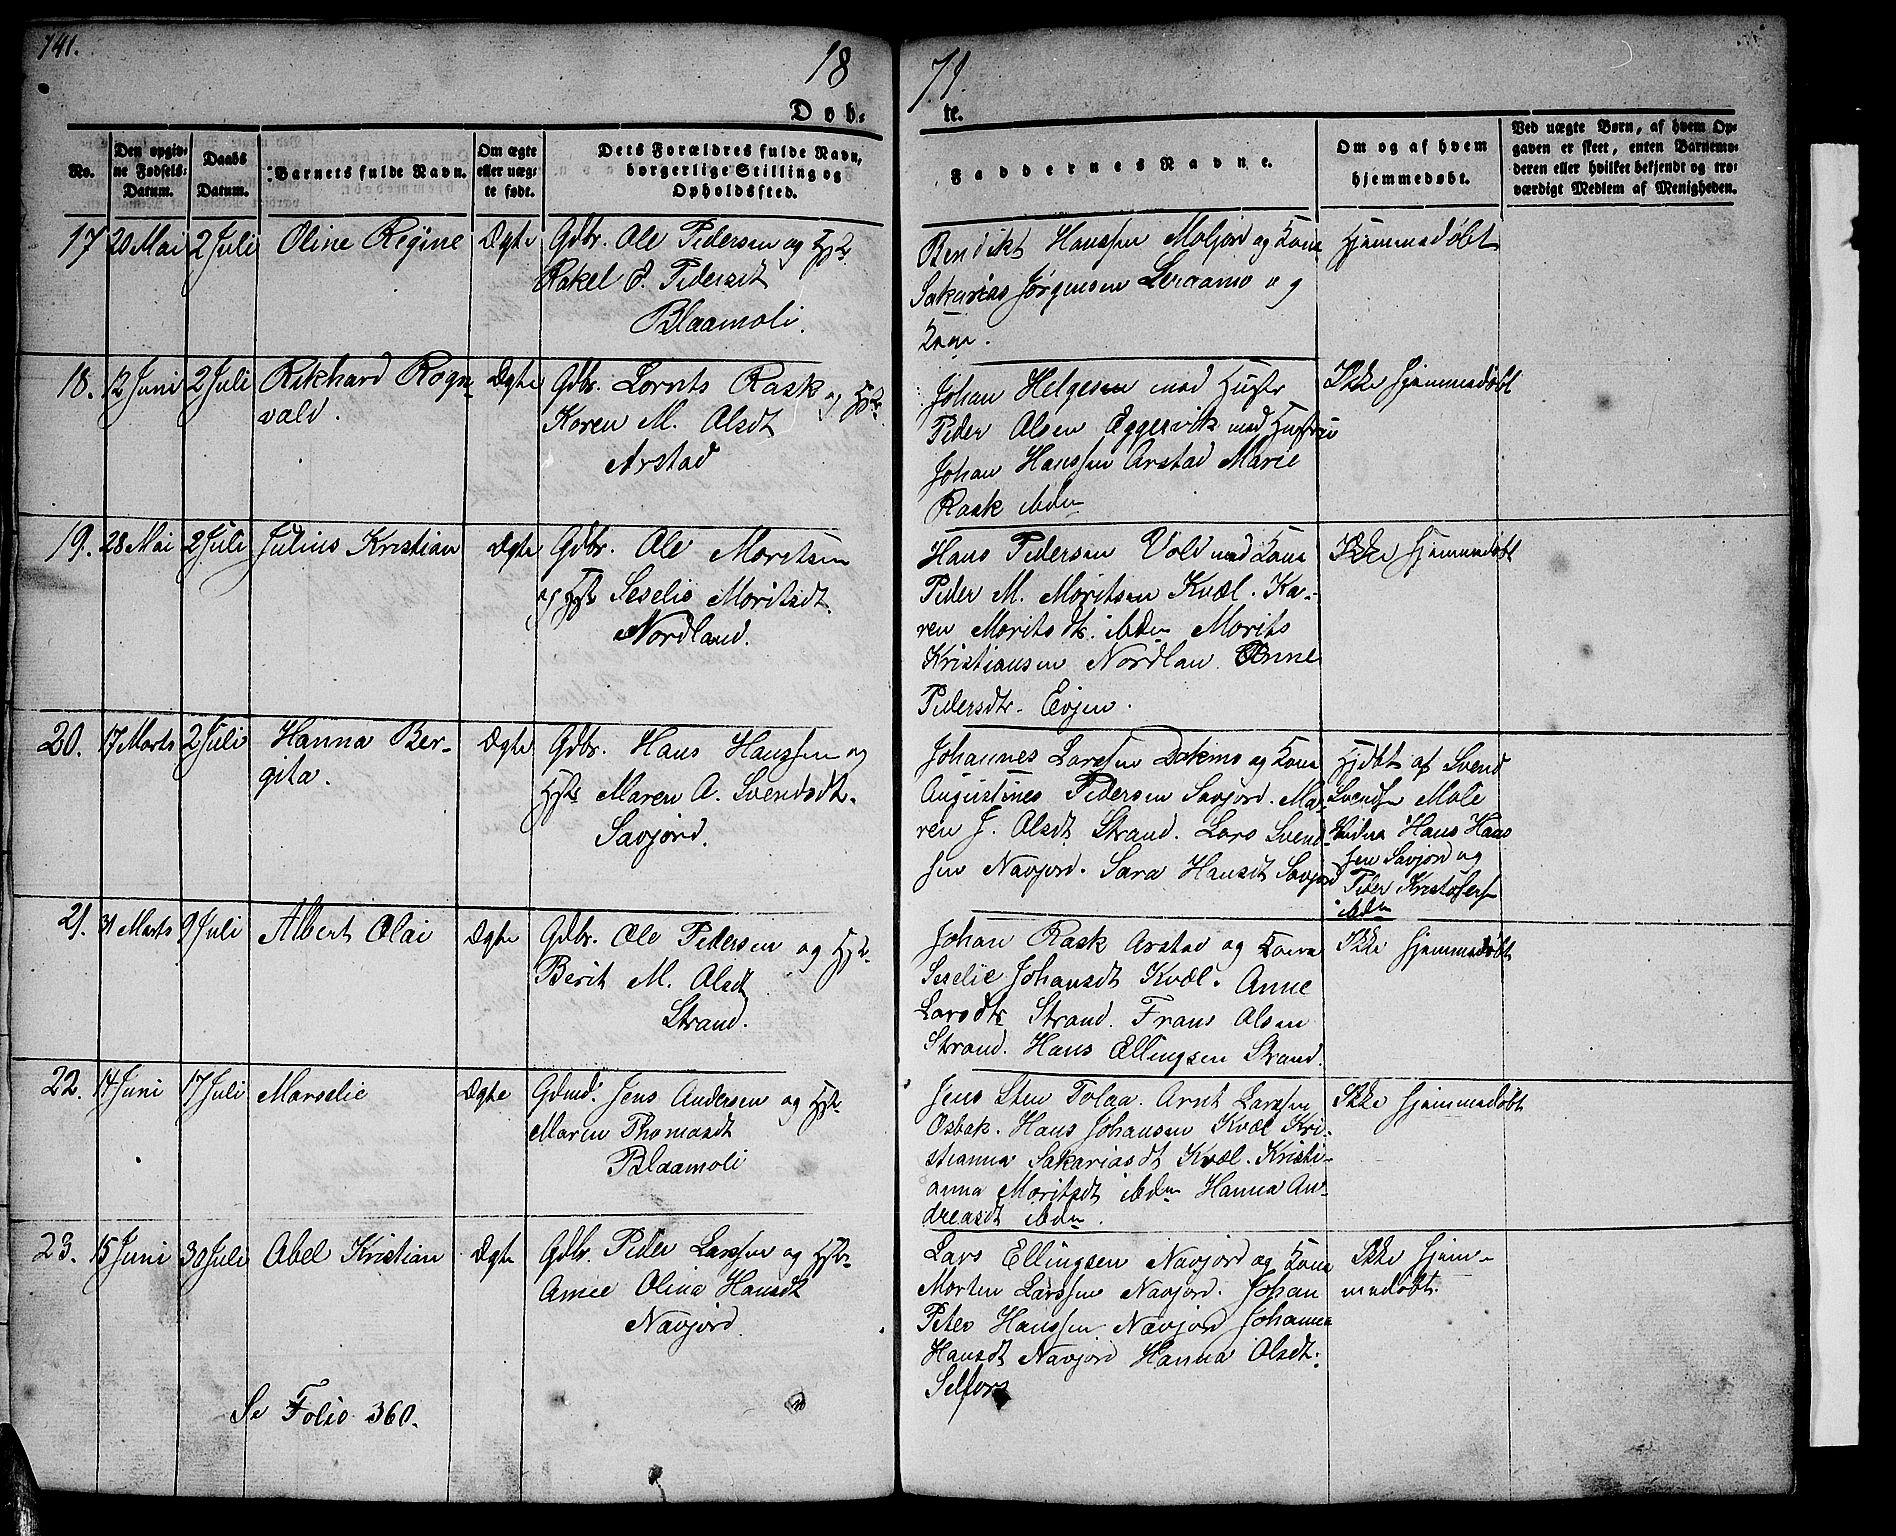 141.
18
71.
Døb-
te.
No.
Den opgiv-
ne Fødsels-
Datum.
Daabs
Datum.
Barnets fulde Navn.
Om ægte
eller uæg-
te født.
Dets Forældres fulde Navn,
borgerlige Stilling og
Opholdssted.
Faddernes Navne.
Om og af hvem
hjemmedøbt.
Ved uægte Børn, af hvem Op-
gaven er skeet, enten Barnemo-
deren eller hvilket bekjendt og tro-
værdigt Medlem af Menigheden.
17 20 Mai 2 Juli Oline Regine Ægte Gdbr. Ole Pedersen og Hst.
Rakel E. Pedersdt
Blaamoli.
Bendikt Hanssen Moljord og Kona
Sakarias Jørgensen og
Kone.
Hjemmedøbt
18. 12 Juni 2 Juli Rikhard Rogn-
vald.
Ægte Gdbr. Lornts Rask og Hst.
Karen M. Olsdt
Arstad
Johan Helgesen med Hustr
Peder Olsen Eggesvik med Hustru
Johan Hanssen Arstad Marie
Rask ibdm
Ikke hjemmedøbt
19. 28 Mai 2 Juli Julius Kristian Ægte Gdbr. Ole Moritsen
og Hst Seselie Moritsdt.
Nordland.
Hans Pedersen Vold med Kona
Peder M. Moritsen Kvæl. Ka-
ren Moritsdt. ibdm Morits
Kristiansen Nordlan Anne
Pedersdtr. Evjen.
Ikke hjemmedøbt
20. 17 Marts 2 Juli Hanna Ber-
gita.
Ægte Gdbr. Hans Hanssen og
Hst Maren A. Svendsdt.
Savjord.
Johannes Larssen Dokmo og Kona
Augustines Pedersen Savjord. Ma-
ren J. Olsdt Strand. Lars Svend-
sen Navjord. Sara Hansdt Savjord
Hjdbt af Svend
Svendsen Mole
Hans Hans
sen Savjord og
Peder Kristofersen
ibdm
21. 31 Marts 9 Juli Albert Olai Ægte Gdbr. Ole Pedersen og Hst.
Berit M. Olsdt
Strand.
Johan Rask Arstad og Kona
Seselie Johansdt Kvæl. Anne
Larsdtr Strand. Frans Olsen
Strand. Hans Ellingsen Strand.
Ikke hjemmedøbt
22. 14 Juni 17 Juli Marselie Ægte Gdmd. Jens Andersen og Hst.
Maren Thomasdt
Blaamoli
Jens Sten Tolaa. Arnt Larssen
Osbak. Hans Johansen Kvæl Kri-
stianna Sakariasdt Kvæl. Kristi-
anna Moritsdt ibdm Hanna An-
dreasdt ibdm.
Ikke hjemmedøbt
23. 15 Juni 30 Juli Abel Kristian Ægte Gdbr. Peder Larssen og Hst.
Anne Olina Hansdt
Navjord.
Lars Ellingsen Navjord og Kona
Morten Larssen Navjord. Johan
Peter Hanssen Navjord Johanna
Hansdt Navjord Hanna Olsdt.
Selfors
Ikke hjem-
medøbt.
Se Folio 360.